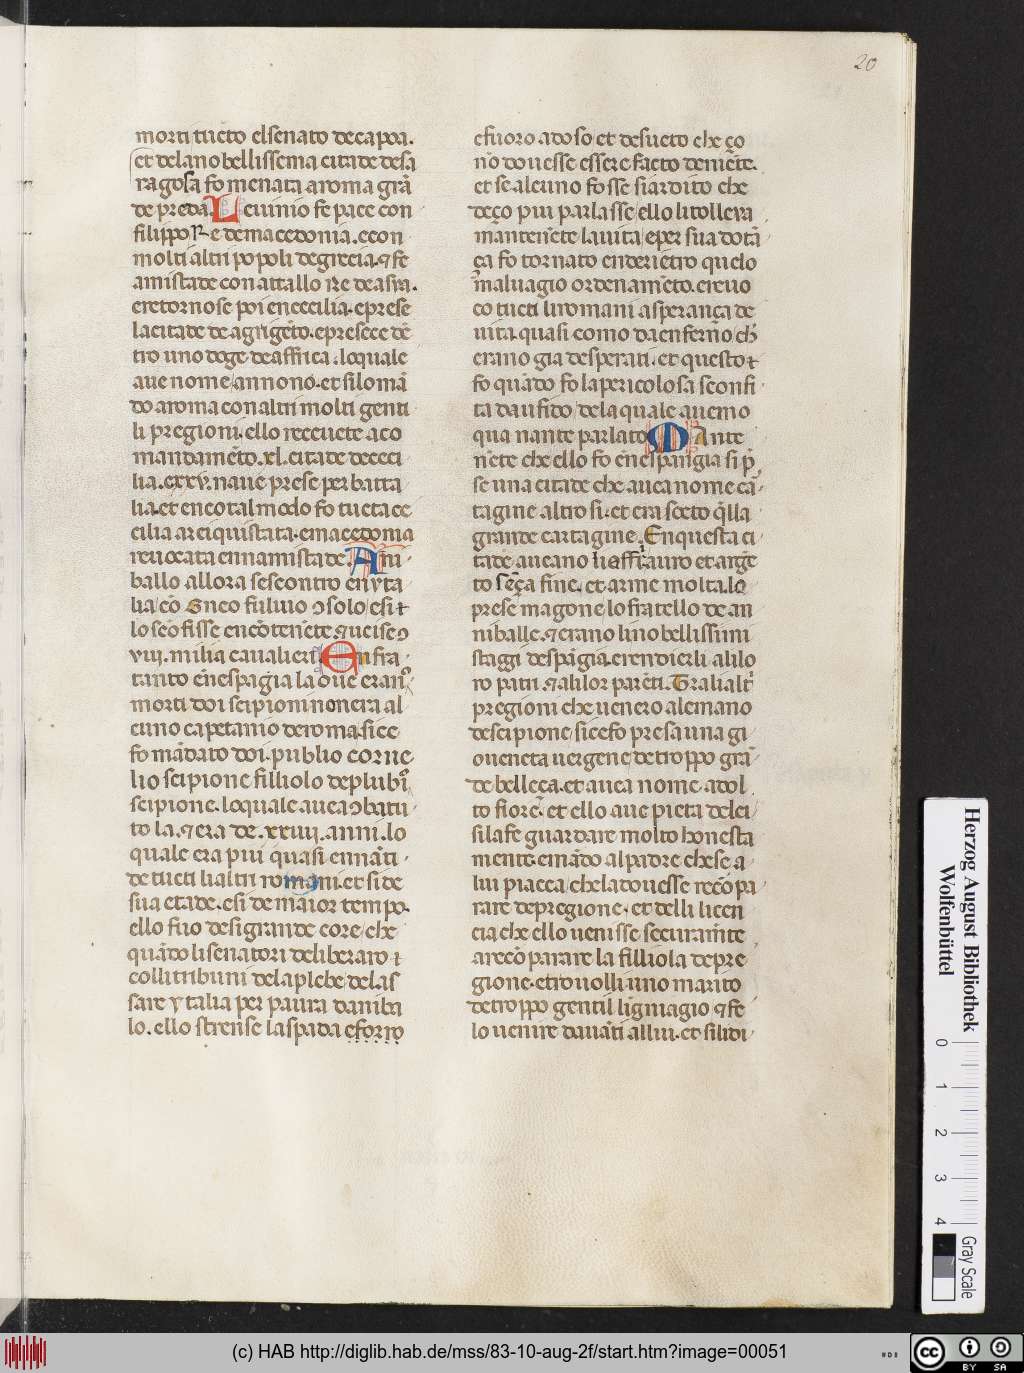 20
morti tucto el senato de capoa.
et de lano bellissema citade desa
ragosa fo menata a roma grã
de preda. Lcuinio fe pace con
filippo Re de macedonia. e con
molti altri popoli de grecia. ⁊ fe
amistade con attallo Re de asia.
e retornose poi en cecilia. e prese
la citade de agrigẽto. e presece dẽ
tro uno doge de affrica. lo quale
aue nome annono. et si lo mã
do a roma con altri molti genti
li pregioni. ello receuete a co
mandamẽto. xl. citade de ceci
lia. e xxv. naue prese per batta
lia. et en cotal modo fo tucta ce
cilia arciquistata. e macedonia
reuocata enn amistade. Ani
ballo allora se scontro en yta
lia cõ Gneo fuluio ↄsolo e si ⁊
lo scõfisse en cõtenẽte ⁊ ucise ↄ
viii. milia caualieri. Enfra
tanto ẽn espagia la oue eran̾
morti doi scipioni non era al
cuno capetanio de roma. si ce
fo mãdato doi. publio corne
lio scipione filliolo de plubi̾
scipione. lo quale auea ↄbatu
to la. ⁊ era de. xxiiii. anni. lo
quale era piui quasi ennãti
de tucti li altri romani. et si de
sua etade. e si de maior tempo.
ello fuo de si grande core che
quãdo li senatori deliberaro ⁊
colli tribuni de la plebe de las
sare ytalia per paura d aniba
lo. ello strense la spada e forno
e fuoro adoso et desueto che ço
nõ douesse essere facto de niẽte.
et se alcuno fosse si ardito che
de ço piu parlasse ello li tolleria
mantenẽte la uita e per sua dotã
ça fo tornato enderiẽtro quelo
maluagio ordenamẽto. e reuo
co tucti li romani a sperança de
uita quasi como da enferno ch̃
erano gia desperati. et questo ⁊
fo quãdo fo la pericolosa sconfi
ta d aufido de la quale auemo
qua nante parlato. Mante
nẽte che ello fo ẽn espangia si p̃
se una citade che auea nome cã
tagine altro si. et era socto q̃lla
grande cartagine. En questa ci
tade aueano li affri auro et argẽ
to sẽça fine. et arme molta. lo
prese magone lo fratello de an
niballe. ⁊ erano lino bellissimi
staggi de spãgia. e rendierli alilo
ro patri ⁊ alilor parẽti. Tra li alt̾
pregioni che uenero a le mano
de scipione si ce fo presa una gi
oueneta uergene de troppo grã
de belleça. et auea nome adol
to fiore. et ello aue pieta de lei
si la fe guardare molto honesta
mente. e mãdo al padre che se a
lui piacea che la douesse recõpa
rare de pregione. et delli licen
cia che ello uenisse securamẽte
a recõparare la filliola de pre
gione. et ro uolli uno marito
de troppo gentil ligniagio ⁊ fe
lo uenire dauãti allui. et si li di
Herzog August Bibliothek
Wolfenbüttel
0 1 2 3 4
Gray Scale
(c) HAB http://diglib.hab.de/mss/83-10-aug-2f/start.htm?image=00051
CC BY SA